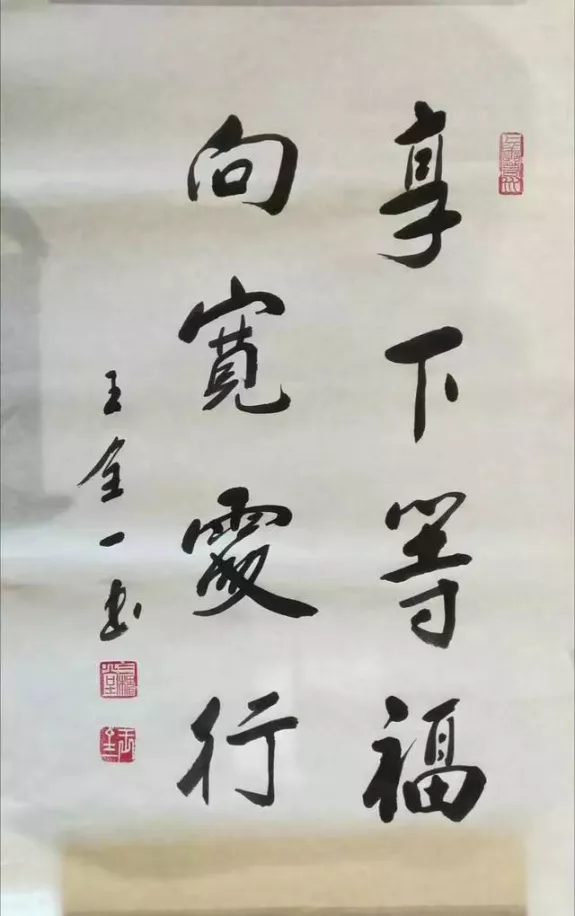 享下等福
向寬處行
王金一书